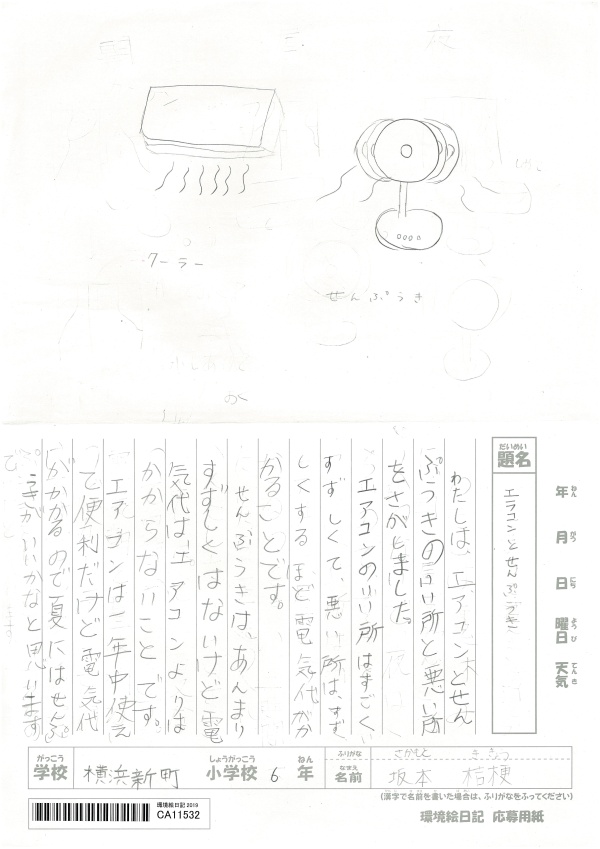 クーラー
せんぷうき
だいめい
題名
エアコンとせんぷうき
ねん
年
がつ
月
にち
日
ようび
曜日
てんき
天気
わたしは、エアコンとせん
ぷうきのいい所と悪い所
をさがしました。
エアコンのいい所はすごく
すずしくて、悪い所は、すず
しくするほど電気代がか
かることです。
せんぷうきは、あんまり
すずしくはないけど電
気代は、エアコンよりは
かからないことです。
エアコンは一年中使え
て便利だけど電気代
がかかるので夏にはせんぷ
うきがいいかなと思います
がっこう
学校
横浜新町
しょうがっこう
小学校
6
ねん
年
ふりがな
さかもと ききょう
なまえ
名前
坂本 桔梗
(漢字で名前を書いた場合は、ふりがなをふってください)
環境絵日記 2019
CA11532
環境絵日記 応募用紙